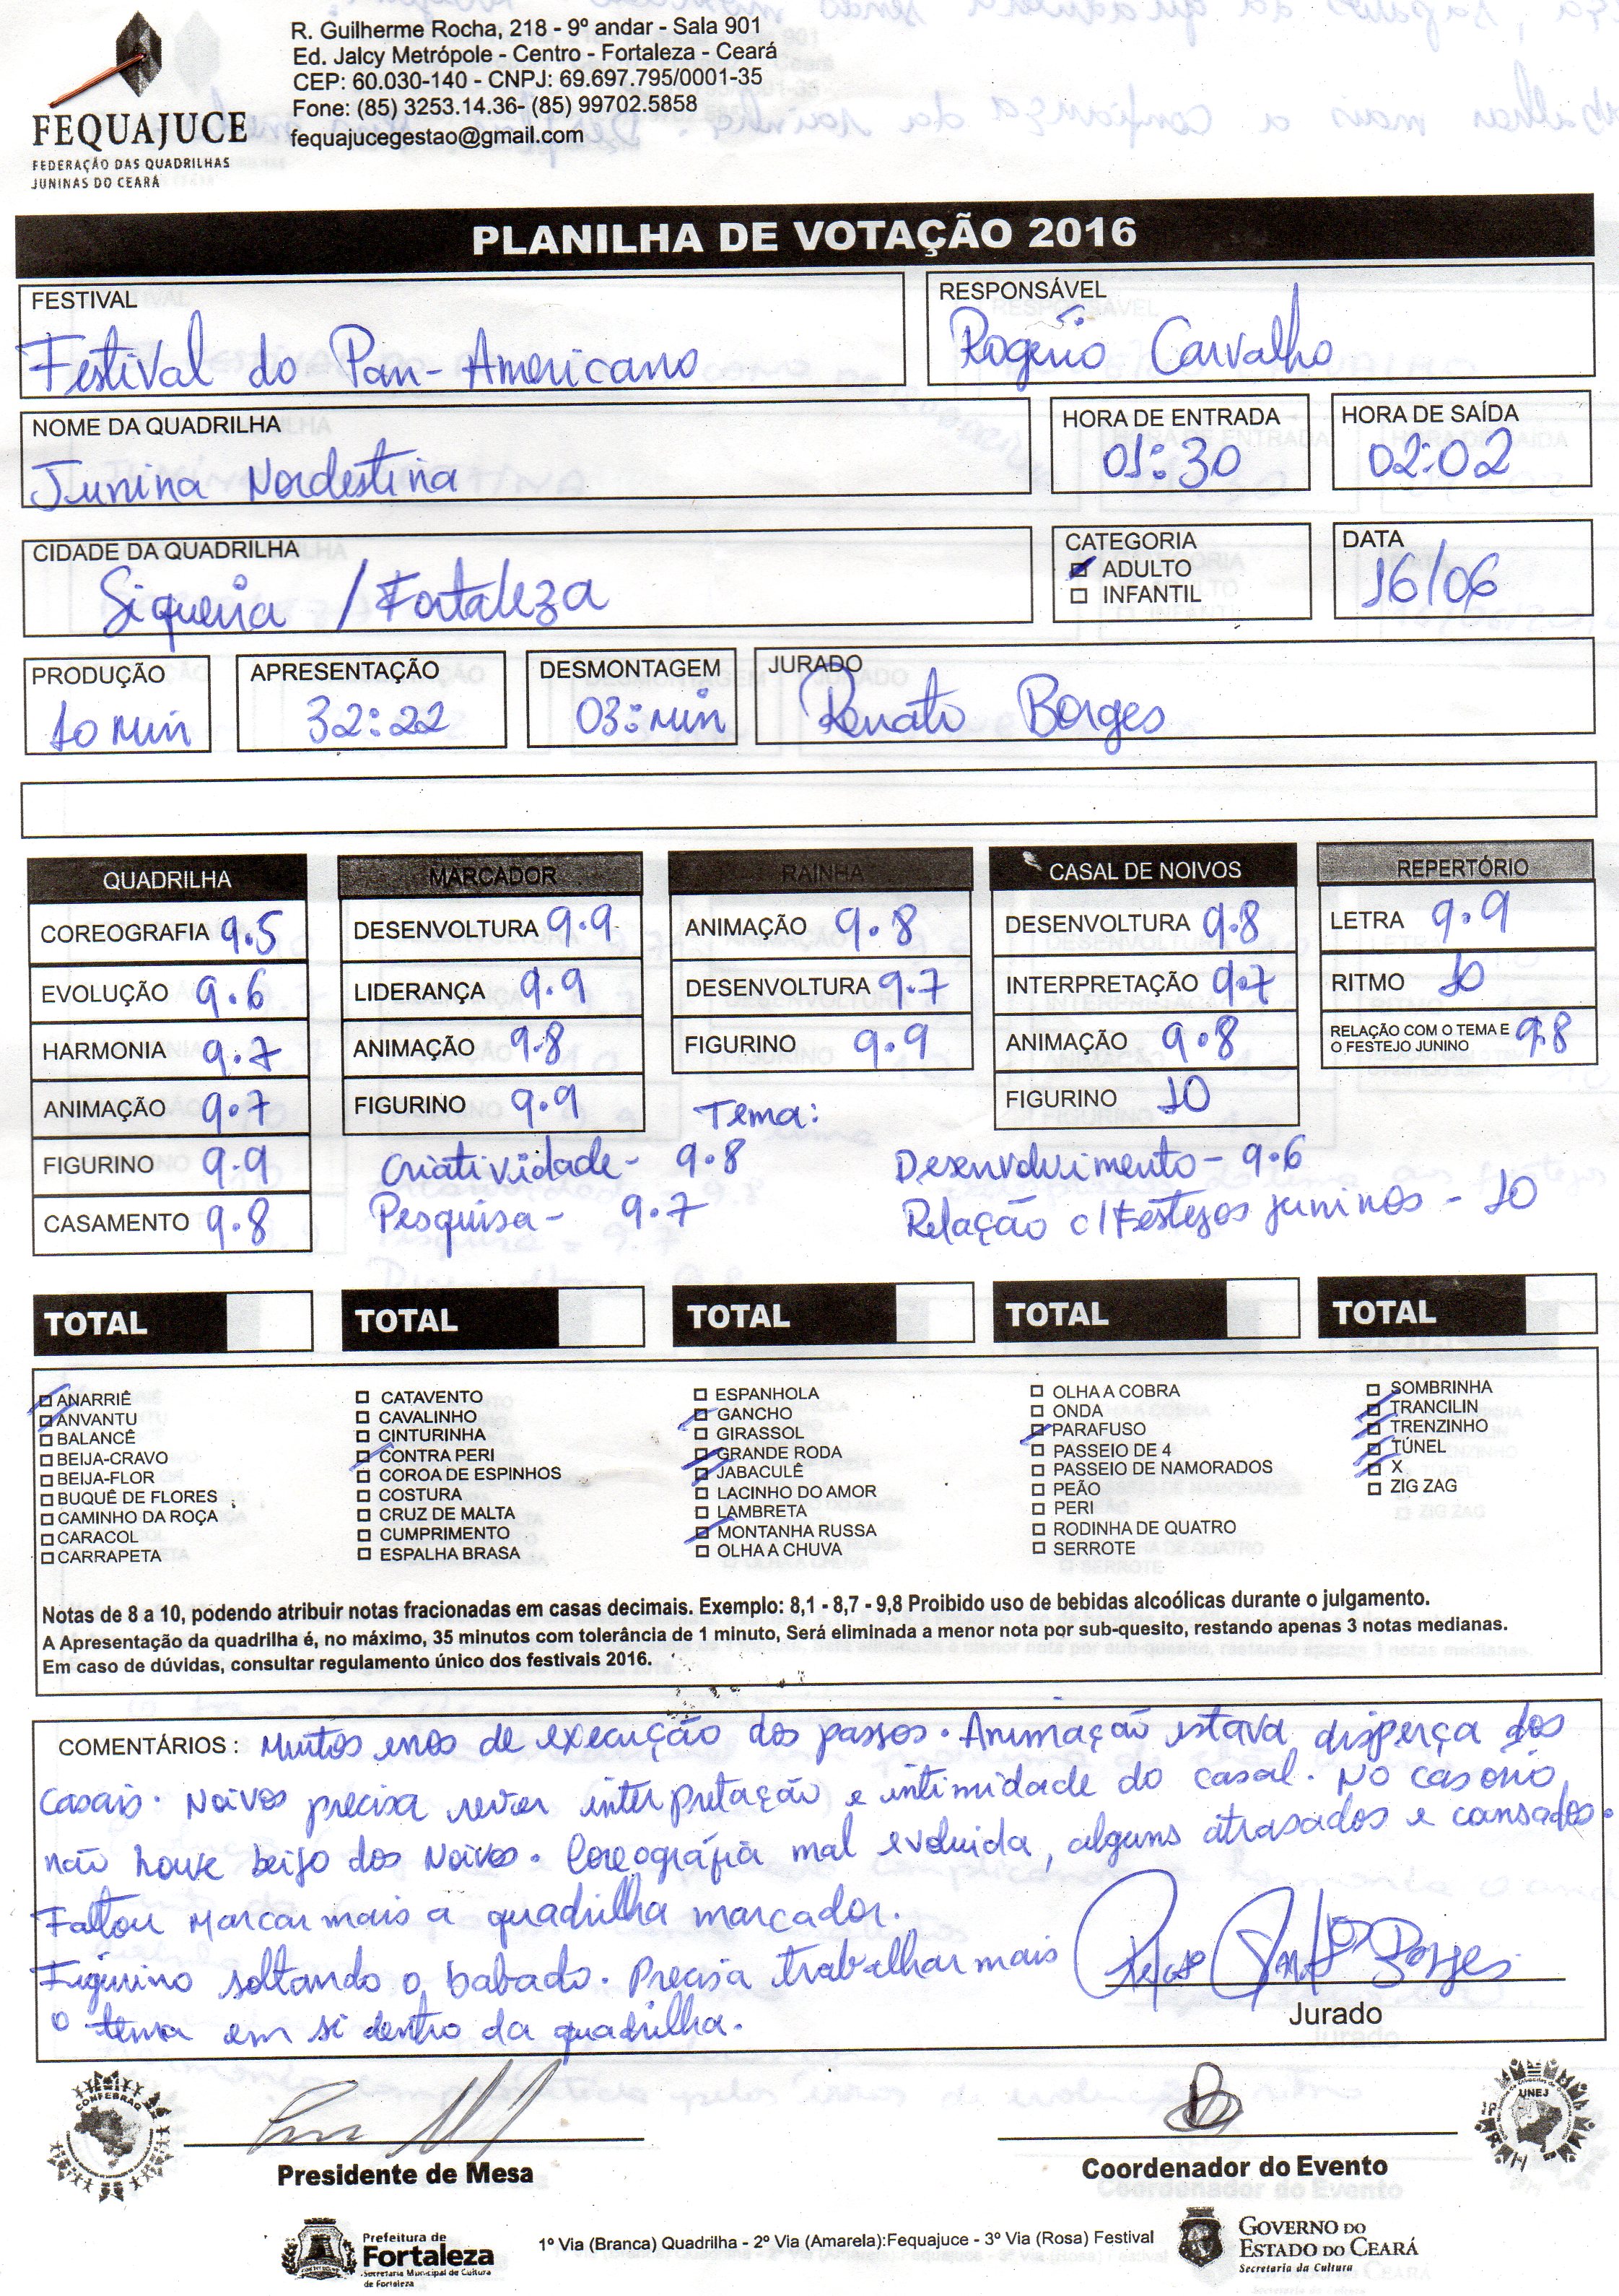 R. Guilherme Rocha, 218 - 9º andar - Sala 901
Ed. Jalcy Metrópole - Centro - Fortaleza - Ceará
CEP: 60.030-140 - CNPJ: 69.697.795/0001-35
Fone: (85) 3253.14.36- (85) 99702.5858
fequajucegestao@gmail.com
FEQUAJUCE
FEDERAÇÃO DAS QUADRILHAS
JUNINAS DO CEARÁ
PLANILHA DE VOTAÇÃO 2016
FESTIVAL
Festival do Pan-Americano
RESPONSÁVEL
Rogério Carvalho
NOME DA QUADRILHA
Junina Nordestina
HORA DE ENTRADA
01:30
HORA DE SAÍDA
02:02
CIDADE DA QUADRILHA
Siqueria / Fortaleza
CATEGORIA
ADULTO
INFANTIL
DATA
16/06
PRODUÇÃO
10 min
APRESENTAÇÃO
32:22
DESMONTAGEM
03:min
JURADO
Renato Borges
QUADRILHA
COREOGRAFIA 9.5
EVOLUÇÃO 9.6
HARMONIA 9.7
ANIMAÇÃO 9.7
FIGURINO 9.9
CASAMENTO 9.8
MARCADOR
DESENVOLTURA 9.9
LIDERANÇA 9.9
ANIMAÇÃO 9.8
FIGURINO 9.9
RAINHA
ANIMAÇÃO 9.8
DESENVOLTURA 9.7
FIGURINO 9.9
CASAL DE NOIVOS
DESENVOLTURA 9.8
INTERPRETAÇÃO 9.7
ANIMAÇÃO 9.8
FIGURINO 10
REPERTÓRIO
LETRA 9.9
RITMO 10
RELAÇÃO COM O TEMA E
O FESTEJO JUNINO 9.8
Tema:
Criatividade - 9.8
Desenvolvimento - 9.6
Pesquisa - 9.7
Relação c/ Festejos juninos - 10
TOTAL
TOTAL
TOTAL
TOTAL
TOTAL
ANARRIÊ
ANVANTU
BALANCÊ
BEIJA-CRAVO
BEIJA-FLOR
BUQUÊ DE FLORES
CAMINHO DA ROÇA
CARACOL
CARRAPETA
CATAVENTO
CAVALINHO
CINTURINHA
CONTRA PERI
COROA DE ESPINHOS
COSTURA
CRUZ DE MALTA
CUMPRIMENTO
ESPALHA BRASA
ESPANHOLA
GANCHO
GIRASSOL
GRANDE RODA
JABACULÊ
LACINHO DO AMOR
LAMBRETA
MONTANHA RUSSA
OLHA A CHUVA
OLHA A COBRA
ONDA
PARAFUSO
PASSEIO DE 4
PASSEIO DE NAMORADOS
PEÃO
PERI
RODINHA DE QUATRO
SERROTE
SOMBRINHA
TRANCILIN
TRENZINHO
TÚNEL
X
ZIG ZAG
Notas de 8 a 10, podendo atribuir notas fracionadas em casas decimais. Exemplo: 8,1 - 8,7 - 9,8 Proibido uso de bebidas alcoólicas durante o julgamento.
A Apresentação da quadrilha é, no máximo, 35 minutos com tolerância de 1 minuto, Será eliminada a menor nota por sub-quesito, restando apenas 3 notas medianas.
Em caso de dúvidas, consultar regulamento único dos festivais 2016.
COMENTÁRIOS : Muitos erros de execução dos passos. Animação estava disperça dos
casais. Noivos precisa rever interpretação e intimidade do casal. No casorio
não houve beijo dos Noivos. Coreográfia mal evoluida, alguns atrasados e cansados.
Faltou Marcar mais a quadrilha marcador.
Figurino soltando o babado. Precisa trabalhar mais
o tema em si dentro da quadrilha.
Jurado
CONFEBRAQ
UNEJ
Presidente de Mesa
Coordenador do Evento
Prefeitura de
Fortaleza
Secretaria Municipal de Cultura
de Fortaleza
1º Via (Branca) Quadrilha - 2º Via (Amarela):Fequajuce - 3º Via (Rosa) Festival
GOVERNO DO
ESTADO DO CEARÁ
Secretaria da Cultura